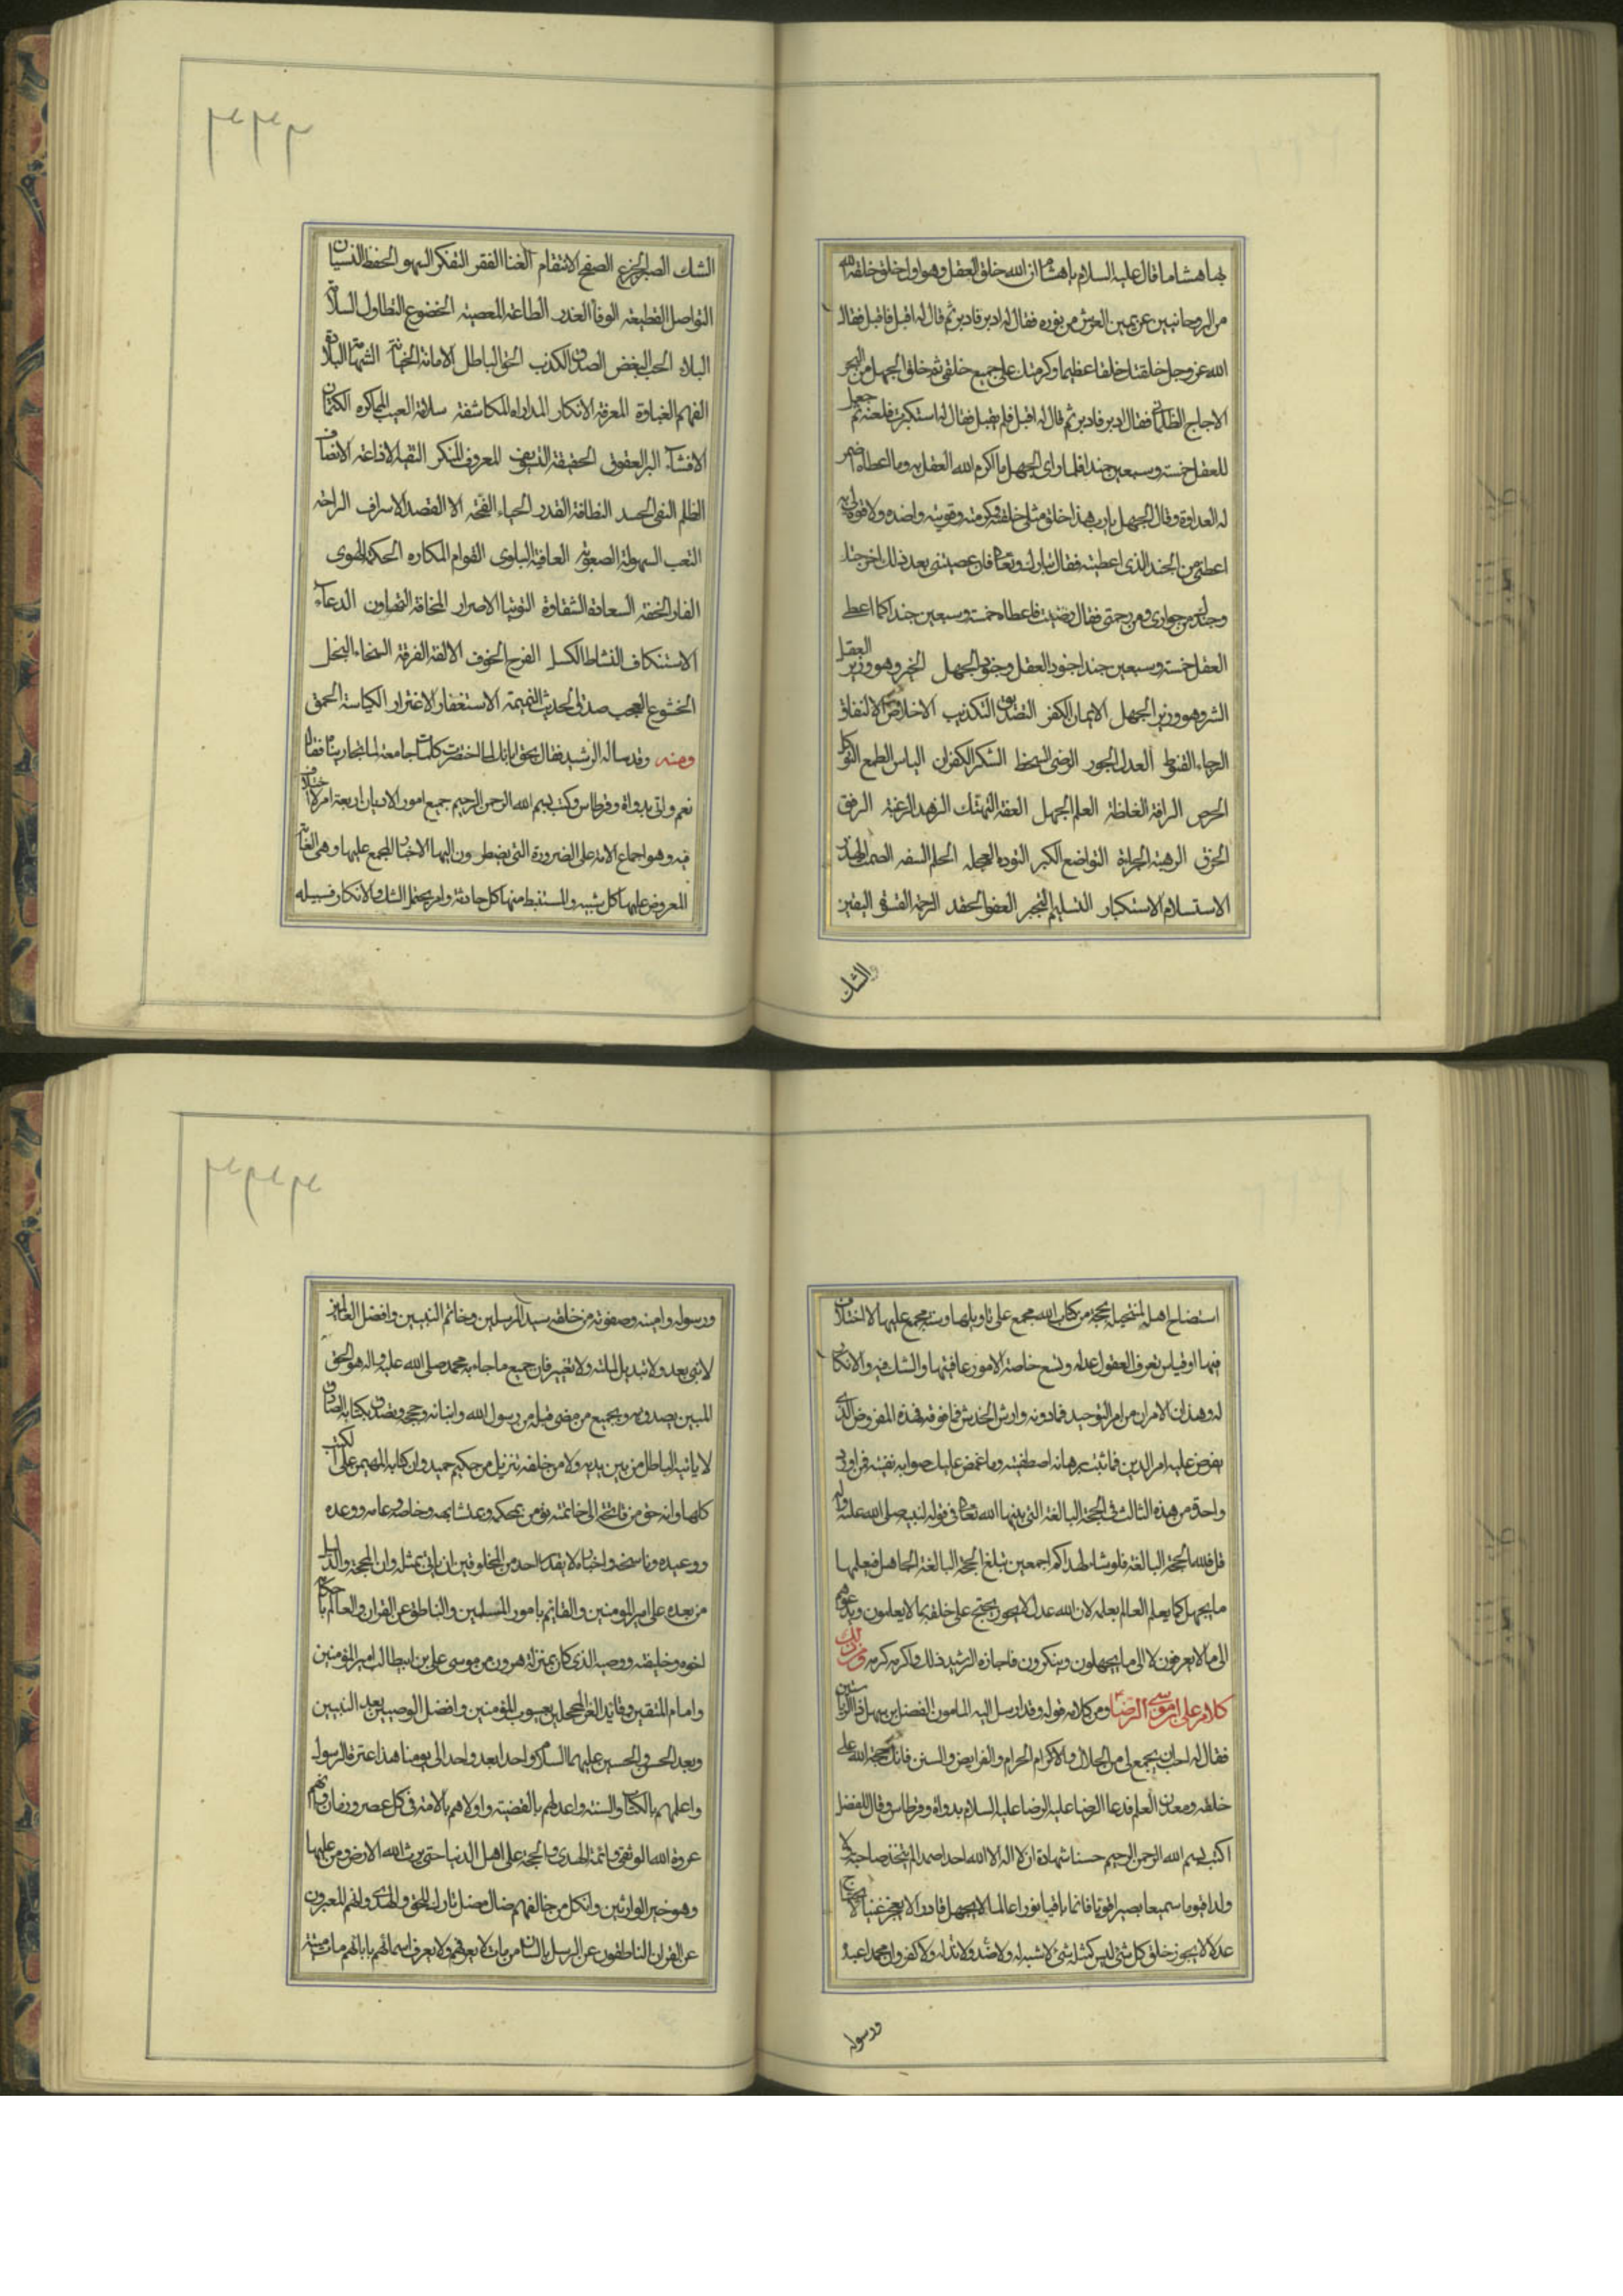 بها هشاما قال عليه السلام يا هشام ان الله خلق العقل وهو اول خلق خلقه الله
من الروحانيين عن يمين العرش من نوره فقال له ادبر فادبر ثم قال له اقبل فاقبل فقال
الله عز وجل خلقتك خلقا عظيما وكرمتك على جميع خلقى ثم خلق الجهل من البحر
الاجاج الظلمانى فقال ادبر فادبر ثم قال له اقبل فلم يقبل فقال له استكبرت فلعنه ثم جعل
للعقل خمسة وسبعين جندا فلما راى الجهل ما اكرم الله العقل به وما اعطاه اضمر
له العداوة وقال الجهل يا رب هذا خلق مثلى خلقته وكرمته وقويته وانا ضده ولا قوة لى به
اعطنى من الجند الذى اعطيته فقال تبارك وتعالى فان عصيتنى بعد ذلك اخرجتك
وجندك من جوارى ومن رحمتى فقال رضيت فاعطاه خمسة وسبعين جندا كما اعطى
العقل خمسة وسبعين جندا جنود العقل وجنود الجهل الخير وهو وزير العقل
الشر وهو وزير الجهل الايمان الكفر التصديق التكذيب الاخلاص النفاق
الرجاء القنوط العدل الجور الرضى السخط الشكر الكفران الياس الطمع التوكل
الحرص الرافة الغلظة العلم الجهل العفة التهتك الزهد الرغبة الرفق
الخرق الرهبة الجراة التواضع الكبر التوده العجله الحلم السفه الصمت الهذر
الاستسلام الاستكبار التسليم التجبر العفو الحقد الرحمة القسوة اليقين
والشك
٣٣٣
الشك الصبر الجزع الصفح الانتقام الغنا الفقر التفكر السهو الحفظ النسيان
التواصل القطيعه الوفا الغدر الطاعة المعصيه الخضوع التطاول السلامة
البلاء الحب البغض الصدق الكذب الحق الباطل الامانة الخيانة الشهامة البلادة
الفهم الغباوة المعرفة الانكار المداراه المكاشفة سلامة الغيب المماكره الكتمان
الافشاء البر العقوق الحقيقة التسويف المعروف المنكر التقيه الاذاعة الانصاف
الظلم النفى الحسد النظافة القذر الحياء القحة القصد الاسراف الراحة
التعب السهولة الصعوبة العافية البلوى القوام المكاره الحكمة الهوى
الوقار الخفة السعادة الشقاوة التوبة الاصرار المخافة التهاون الدعاء
الاستنكاف النشاط الكسل الفرح الحزن الالفة الفرقة السخاء البخل
الخشوع العجب صدق الحديث النميمة الاستغفار الاغترار الكياسة الحمق
ومنه وقد ساله الرشيد فقال بحق ابائك لما اختصرت كلمات جامعة لما تجاريناه فقال
نعم واتى بدواة وقرطاس وكتب بسم الله الرحمن الرحيم جميع امور الاديان اربعة امر لا اختلاف
فيه وهو اجماع الامة على الضرورة التى يضطرون اليها الاخبار المجمع عليها وهى الغاية
المعروض عليها كل شبهه والمستنبط منها كل حادثة وامر يحتمل الشك والانكار فسبيله
استضاح اهل لمنتحليه بحجة من كتاب الله مجمع على تاويلها وسنة مجمع عليها لا اختلاف
فيها او قياس تعرف العقول عدله وتسع خاصة الامور عامتها والشك فيه والانكار
له وهذان الامران من امر التوحيد فما دونه وارش الخدش فما فوقه فهذه المفروض الذى
يعرض عليه امر الدين فما ثبت برهانه اصطفيته وما غمض عليك صوابه نفيته فمن اورد
واحدة من هذه الثلاث فهى الحجة البالغة التى بينها الله تعالى فى قوله لنبيه صلى الله عليه واله
قل فلله الحجة البالغة فلو شاء لهداكم اجمعين تبلغ الحجة البالغة الجاهل فيعلمها
ما يجهل كما يعلم العالم بعلمه لان الله عدل لا يجور يحتج على خلقه بما لا يعلمون ويدعوهم
الى ما لا يعرفون لا الى ما يجهلون وينكرون فاجازه الرشيد ذلك واكرمه كرمه ومن ذلك
كلام على بن موسى الرضا ومن كلامه قوله وقد ارسل اليه المامون الفضل بن سهل ذا الرياستين
فقال له احب ان تجمع لى من الحلال والاكرام الحرام والفرايض والسنن فانك حجة الله على
خلقه ومعدن العلم فدعا الرضا عليه السلام بدواة وقرطاس وقال للفضل
اكتب بسم الله الرحمن الرحيم حسبنا شهادة ان لا اله الا الله احدا صمدا لم يتخذ صاحبة ولا
ولدا قيوما سميعا بصيرا قويا قائما باقيا نورا عالما لا يجهل قادرا لا يعجز غنيا لا يحتاج
عدلا لا يجور خلق كل شئ ليس كمثله شئ لا شبه له ولا ضد ولا ند له ولا كفو وان محمدا عبده
ورسوله
ورسوله وامينه وصفوته من خلقه سيد المرسلين وخاتم النبيين وافضل العالمين
لا نبى بعده ولا تبديل لملته ولا تغيير فان جميع ما جاء به محمد صلى الله عليه واله هو الحق
المبين يصدق به وبجميع من مضى قبله من رسول الله وانبيائه وحججه ويصدق بكتابه الصادق
لا ياتيه الباطل من بين يديه ولا من خلفه تنزيل من حكيم حميد وان كتابه المهيمن على الكتب
كلها وانه حق من فاتحته الى خاتمته يؤمن بمحكمه ومتشابهه وخاصه وعامه ووعده
ووعيده وناسخه واخباره لا يقدر احد من المخلوقين ان ياتى بمثله وان الحجة والدليل
من بعده على امير المومنين والقايم بامور المسلمين والناطق عن القران والعالم باحكامه
اخوه وخليفته ووصيه الذى كان بمنزلة هرون من موسى على بن ابيطالب امير المؤمنين
وامام المتقين وقايد الغر المحجلين يعسوب المؤمنين وافضل الوصيين بعد النبيين
وبعد الحسن والحسين عليهما السلام واحدا بعد واحد الى يومنا هذا عترة الرسول
واعلمهم بالكتاب والسنة واعدلهم بالقضية واولاهم بالامامة فى كل عصر وزمان وانهم
عروة الله الوثقى وائمة الهدى والحجة على اهل الدنيا حتى يرث الله الارض ومن عليها
وهو خير الوارثين وان كل من خالفهم ضال مضل تارك للحق والهدى وانهم المعبرون
عن القران الناطقون عن الرسل بالبيان من مات لا يعرفهم ولا يعرف اسمائهم باباتهم مات ميتة